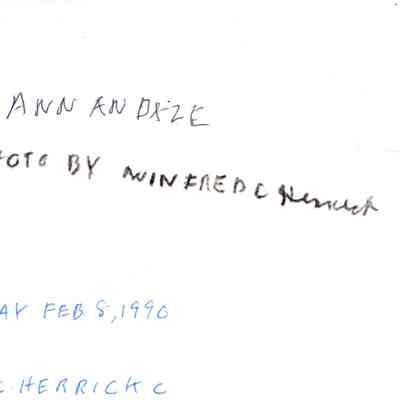 ANN ANDRZE
OTO BY WINFRED C Herrick
AY FEB 8, 1990
C. HERRICK C